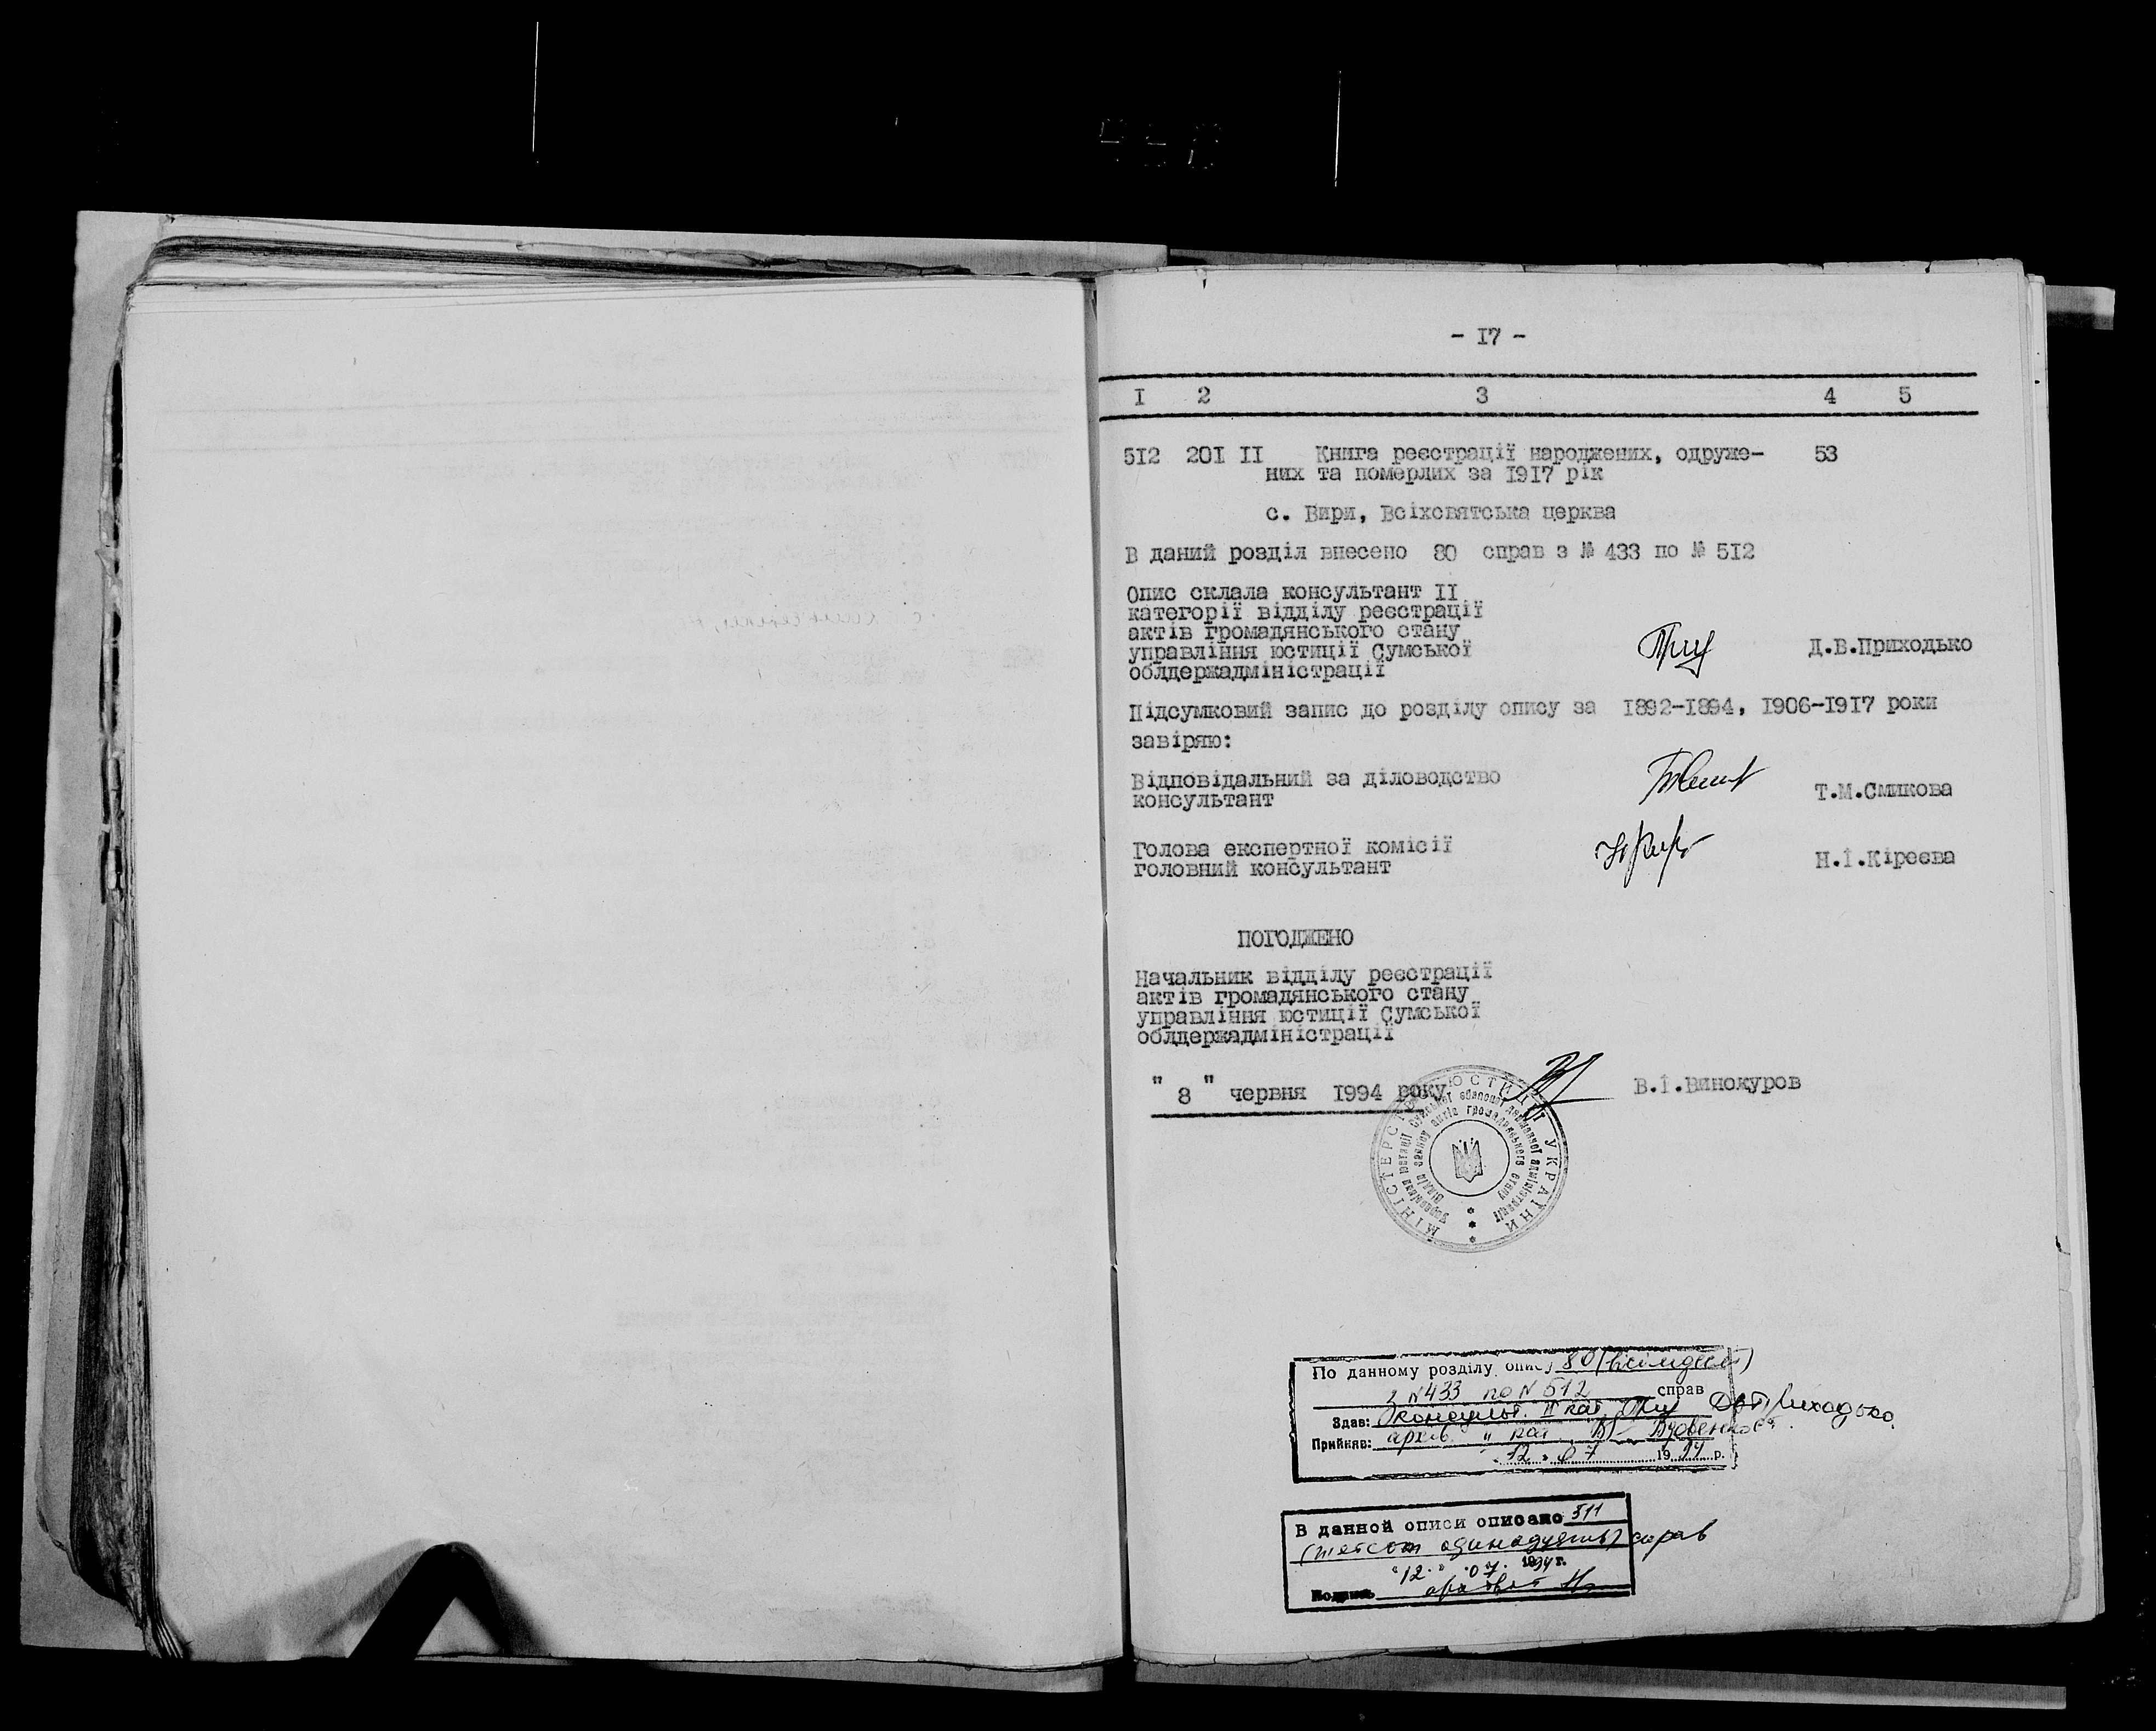 - I7 -
I 2 3 4 5
5I2 20I II Книга реєстрації народжених, одруже- 53
них та померлих за I9I7 рік
с. Вири, Всіхсвятська церква
В даний розділ внесено 80 справ з № 433 по № 5I2
Опис склала консультант II
категорії відділу реєстрації
актів громадянського стану
управління юстиції Сумської
облдержадміністрації
Д.В.Приходько
Підсумковий запис до розділу опису за I892-I894, I906-I9I7 роки
завіряю:
Відповідальний за діловодство
консультант
Т.М.Смикова
Голова експертної комісії
головний консультант
Н.І.Кіреєва
ПОГОДЖЕНО
Начальник відділу реєстрації
актів громадянського стану
управління юстиції Сумської
облдержадміністрації
" 8 " червня I994 року
В.І.Винокуров
МІНІСТЕРСТВО ЮСТИЦІЇ УКРАЇНИ
Управління юстиції Сумської обласної державної адміністрації
Відділ запису актів громадянського стану
По данному розділу опису 80 (вісімдесят)
з N 433 по N 512 справ
Здав: консульт. II кат. Д.В.Приходько
Прийняв: архів. II кат.
" 12 " 07 1994 р.
В данной описи описано 511
(пятсот одинадцять) справ
"12." 07. 1994 г.
Подпись